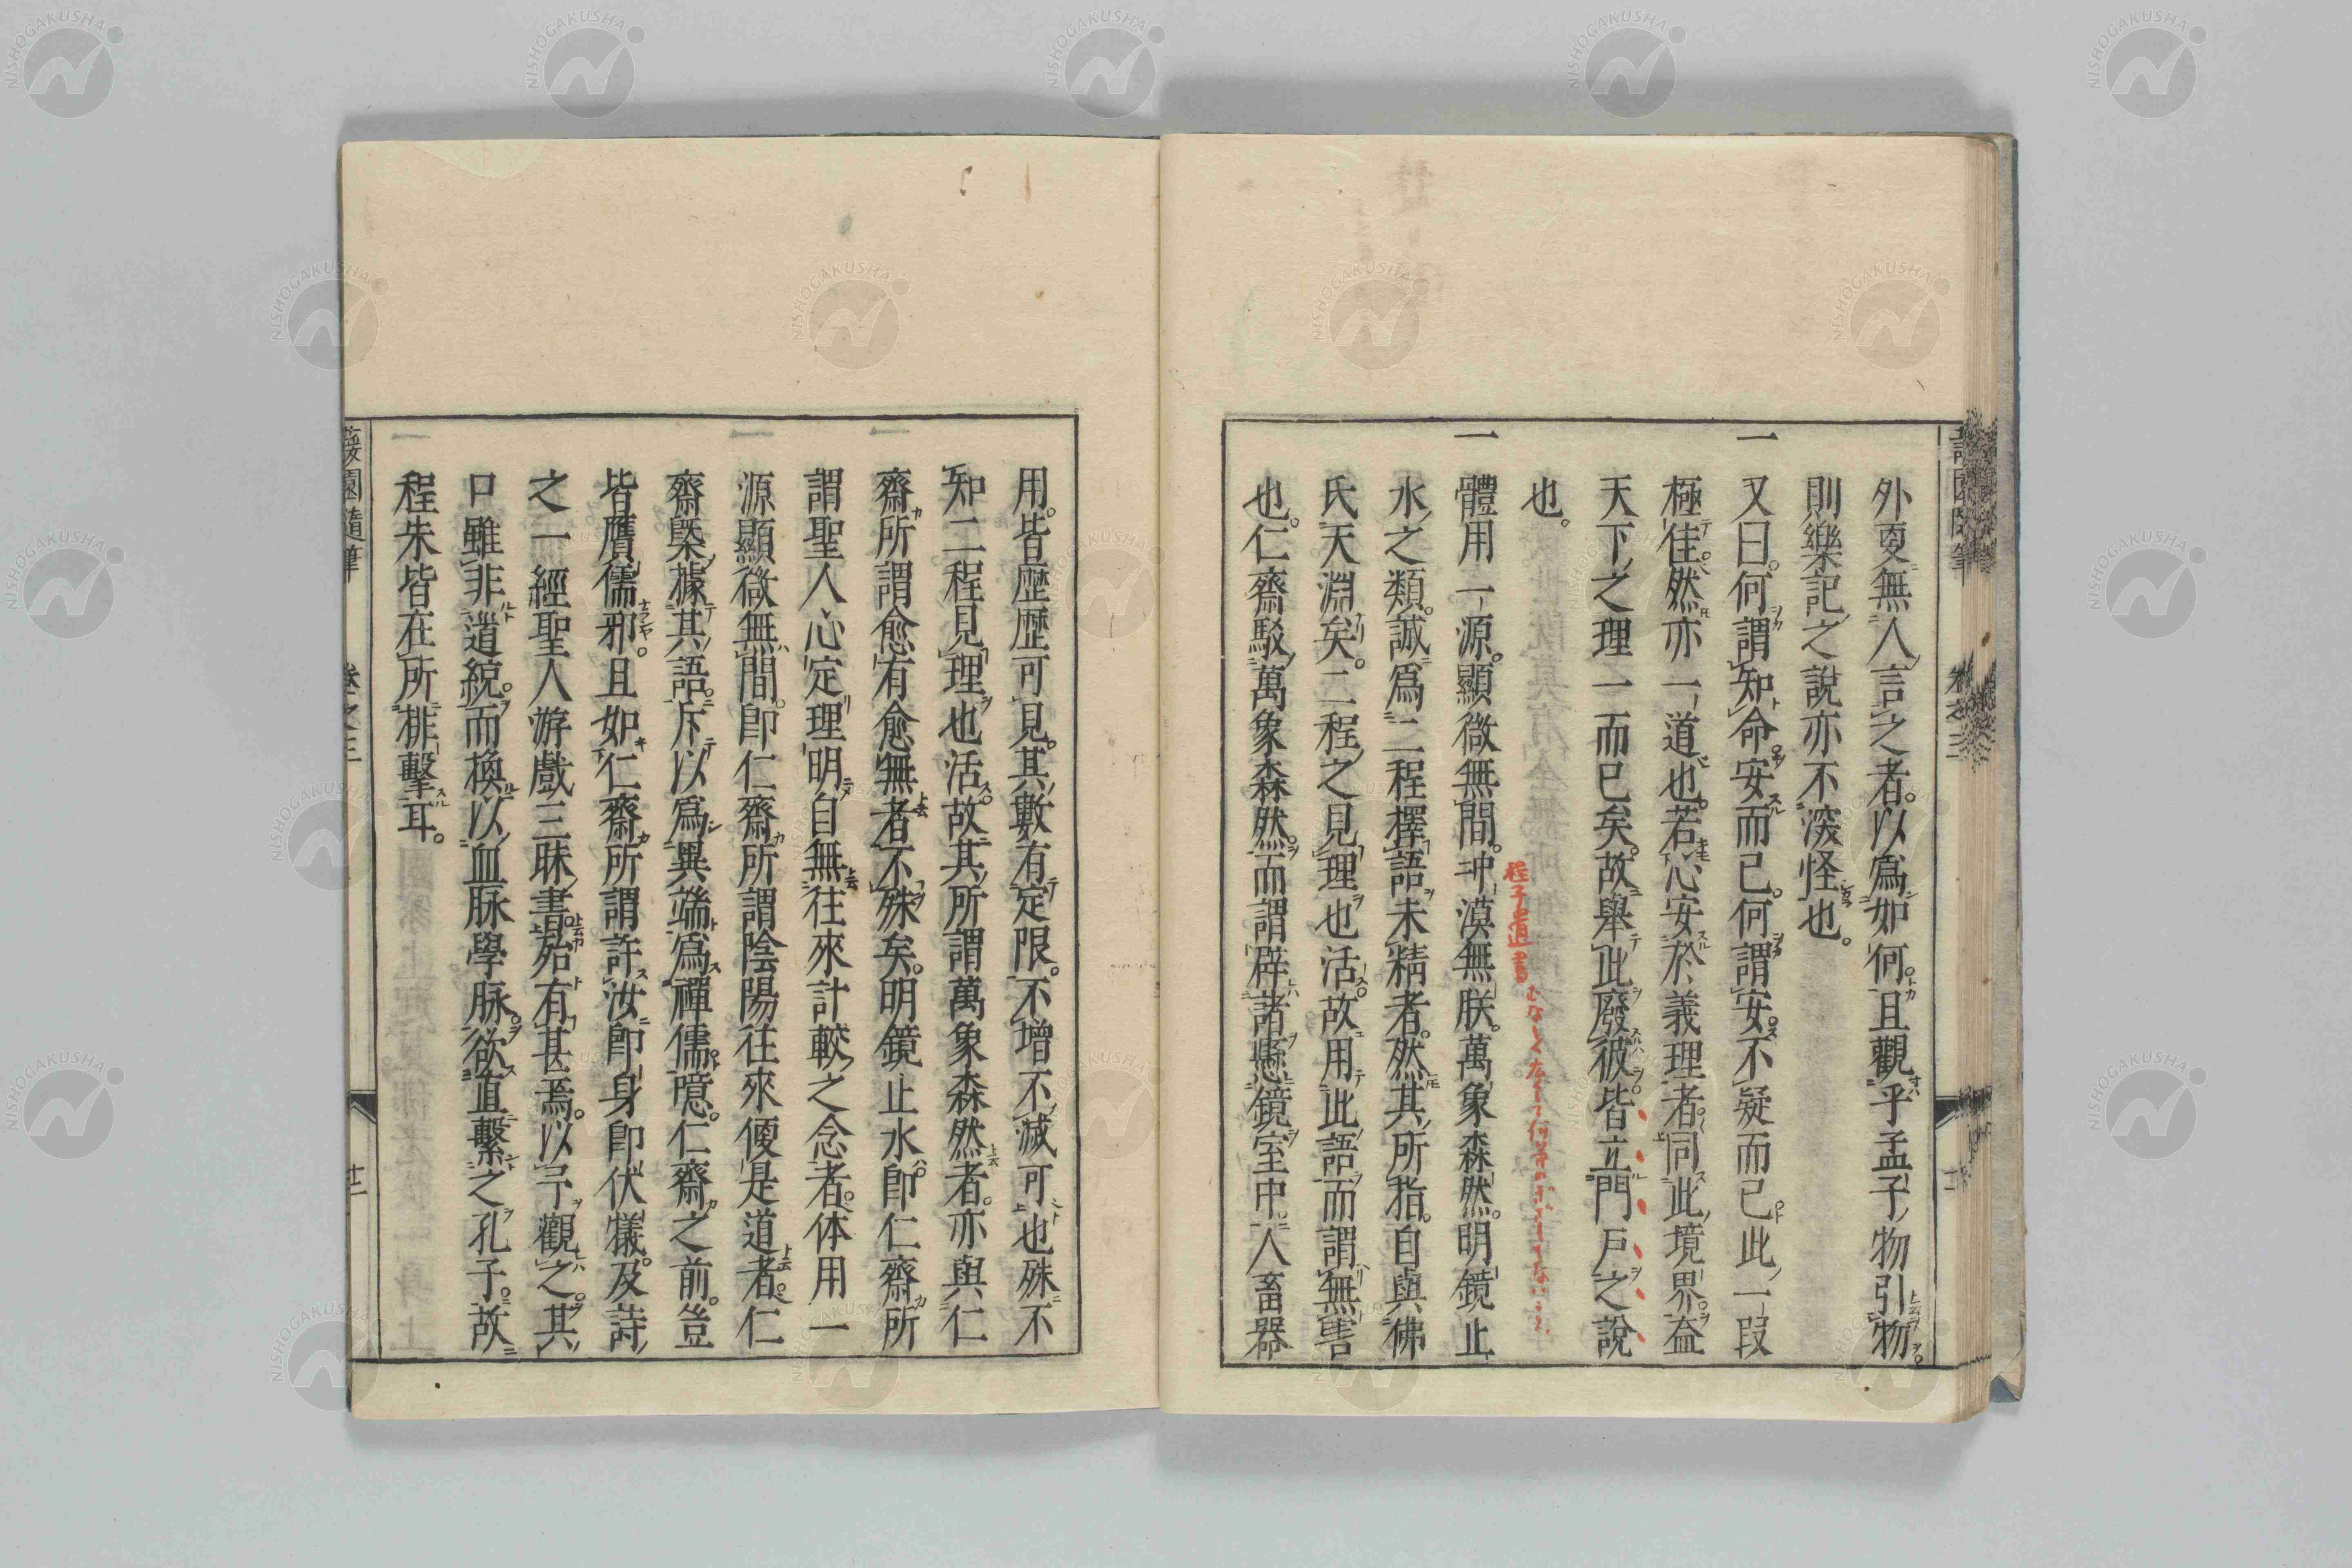 外更無人言之者。以爲如何。且觀乎孟子物引物。
則樂記之説亦不深怪也。
一又曰。何謂知命。安而已。何謂安。不疑而已。此一段
極佳。然亦一道也。若心安於義理者。同此境界。益
天下之理一而已矣。故舉此廢彼。皆立門戸之説
也。
程子遺書
一體用一源。顯微無間。冲漠無朕。萬象森然。明鏡止
水之類。誠爲二程擇語未精者。然其所指。自與佛
氏天淵矣。二程之見理也活。故用此語而謂無害
也。仁齋駁萬象森然。而謂辟諸懸鏡室中。人畜器
用。皆歴歴可見。其數有定限。不增不減可也。殊不
知二程見理也活。故其所謂萬象森然者。亦與仁
齋所謂愈有愈無者不殊矣。明鏡止水。即仁齋所
謂聖人心定理明。自無往來計較之念者。体用一
源顯微無間。即仁齋所謂陰陽往來便是道者。仁
齋槩據其語。斥以爲異端。爲禪儒。噫。仁齋之前。豈
皆贋儒邪。且如仁齋所謂許汝即身即伏犧。及詩
之一經聖人游戲三昧書。殆有甚焉。以予觀之。其
口雖非道統。而換以血脉學脉。欲直繫之孔子。故
程朱皆在所排擊耳。
蘐園隨筆
卷之三